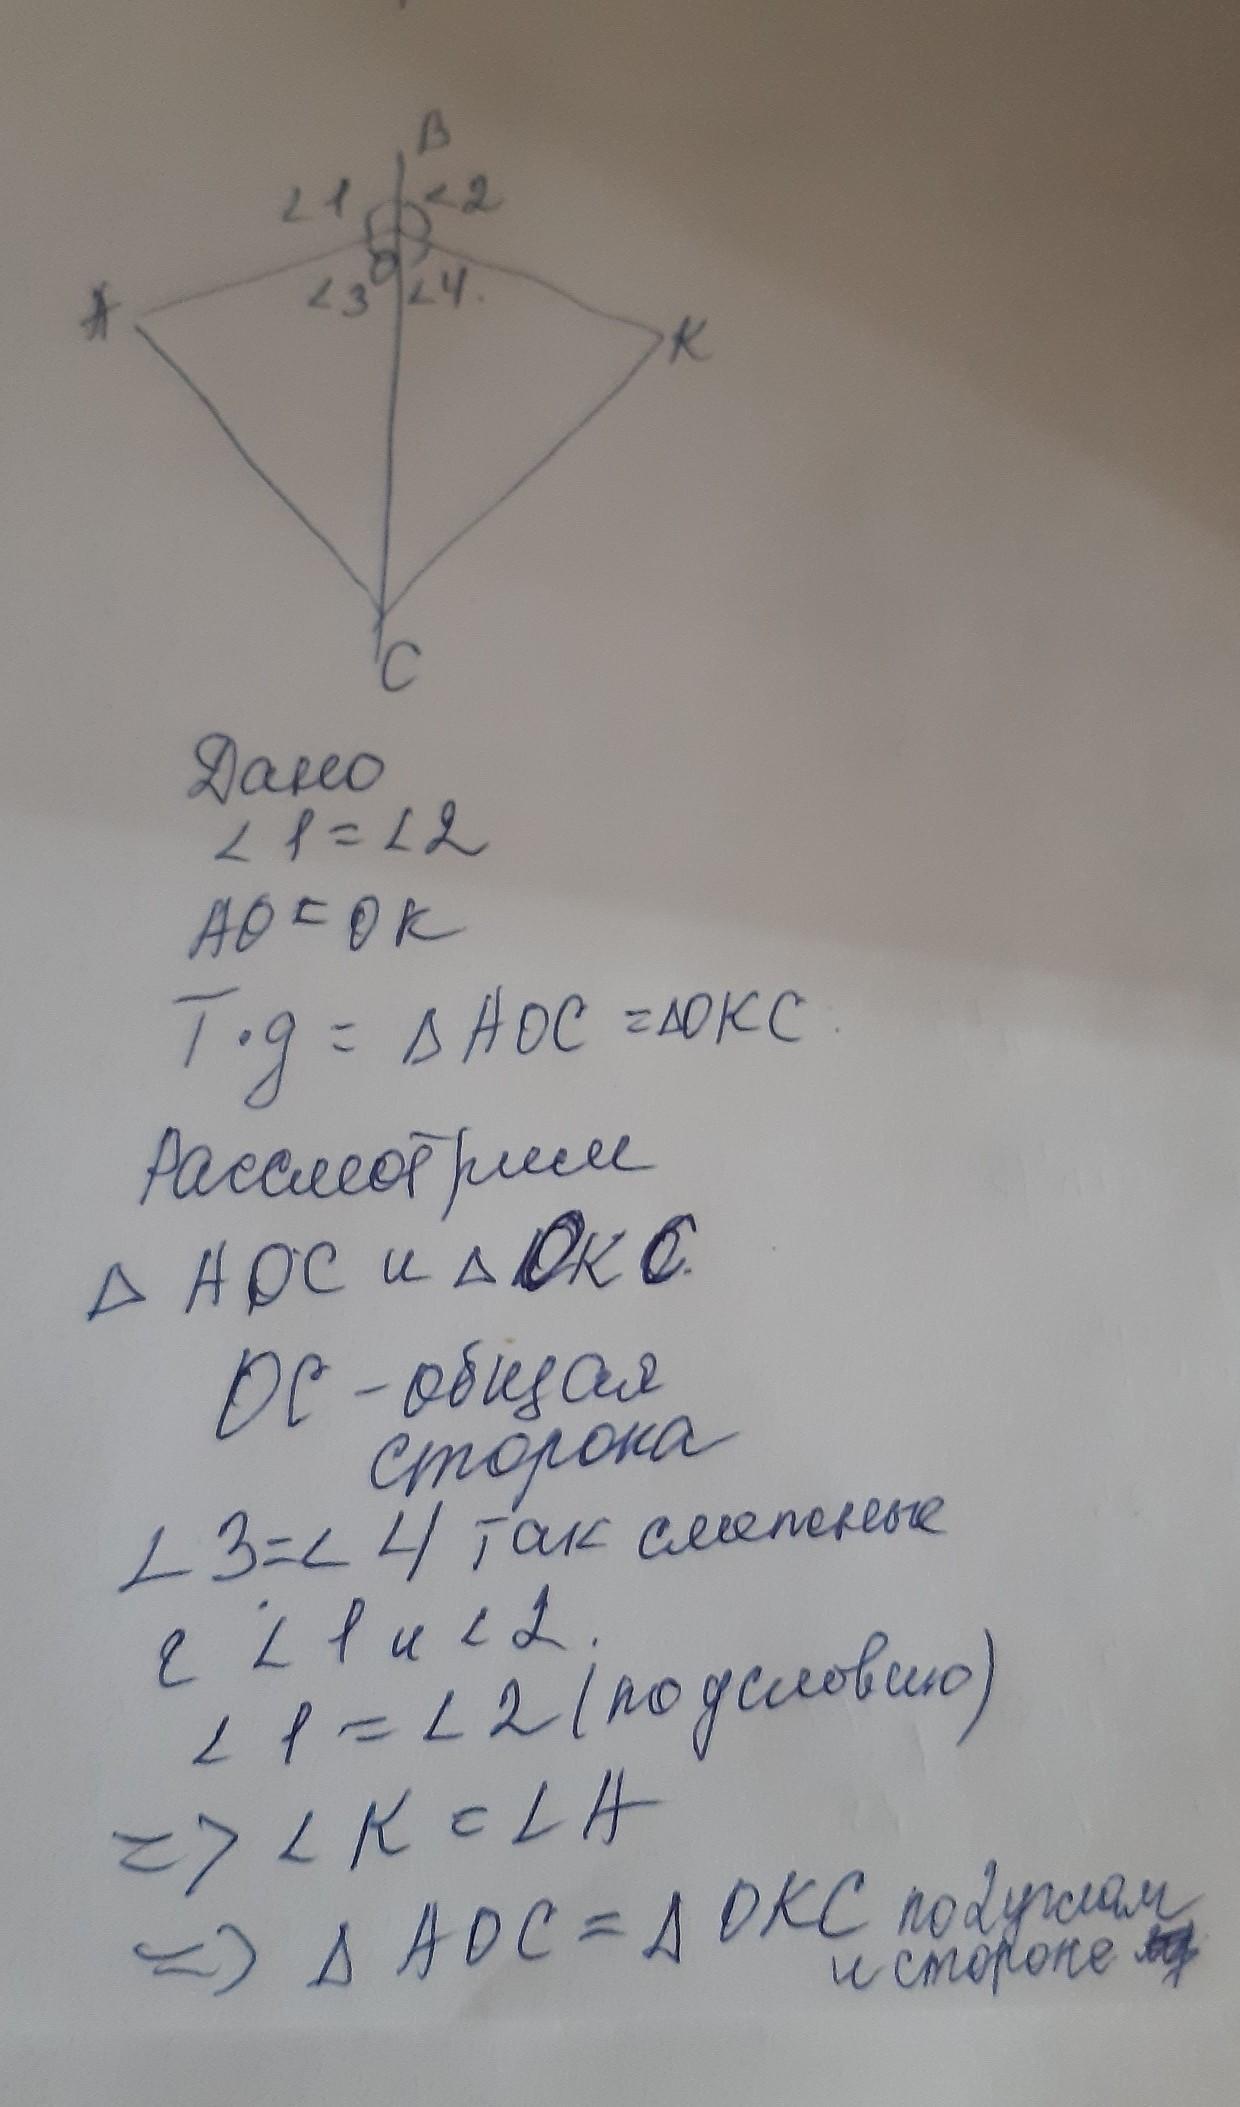 B
∠1 ∠2
O
∠3 ∠4.
A K
C
Дано
∠1=∠2
AO=OK
Т.д = △AOC =△OKC
Рассмотрим
△ AOC и △ OKC.
OC - общая
сторона
∠3=∠4 так смежные
с ∠1 и ∠2.
∠1=∠2 (по условию)
=> ∠K=∠A
=> △ AOC = △ OKC по 2 углам
и стороне